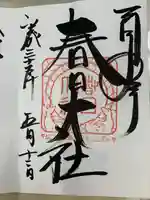 奉拝
春日大社
平成三十年
五月十二日